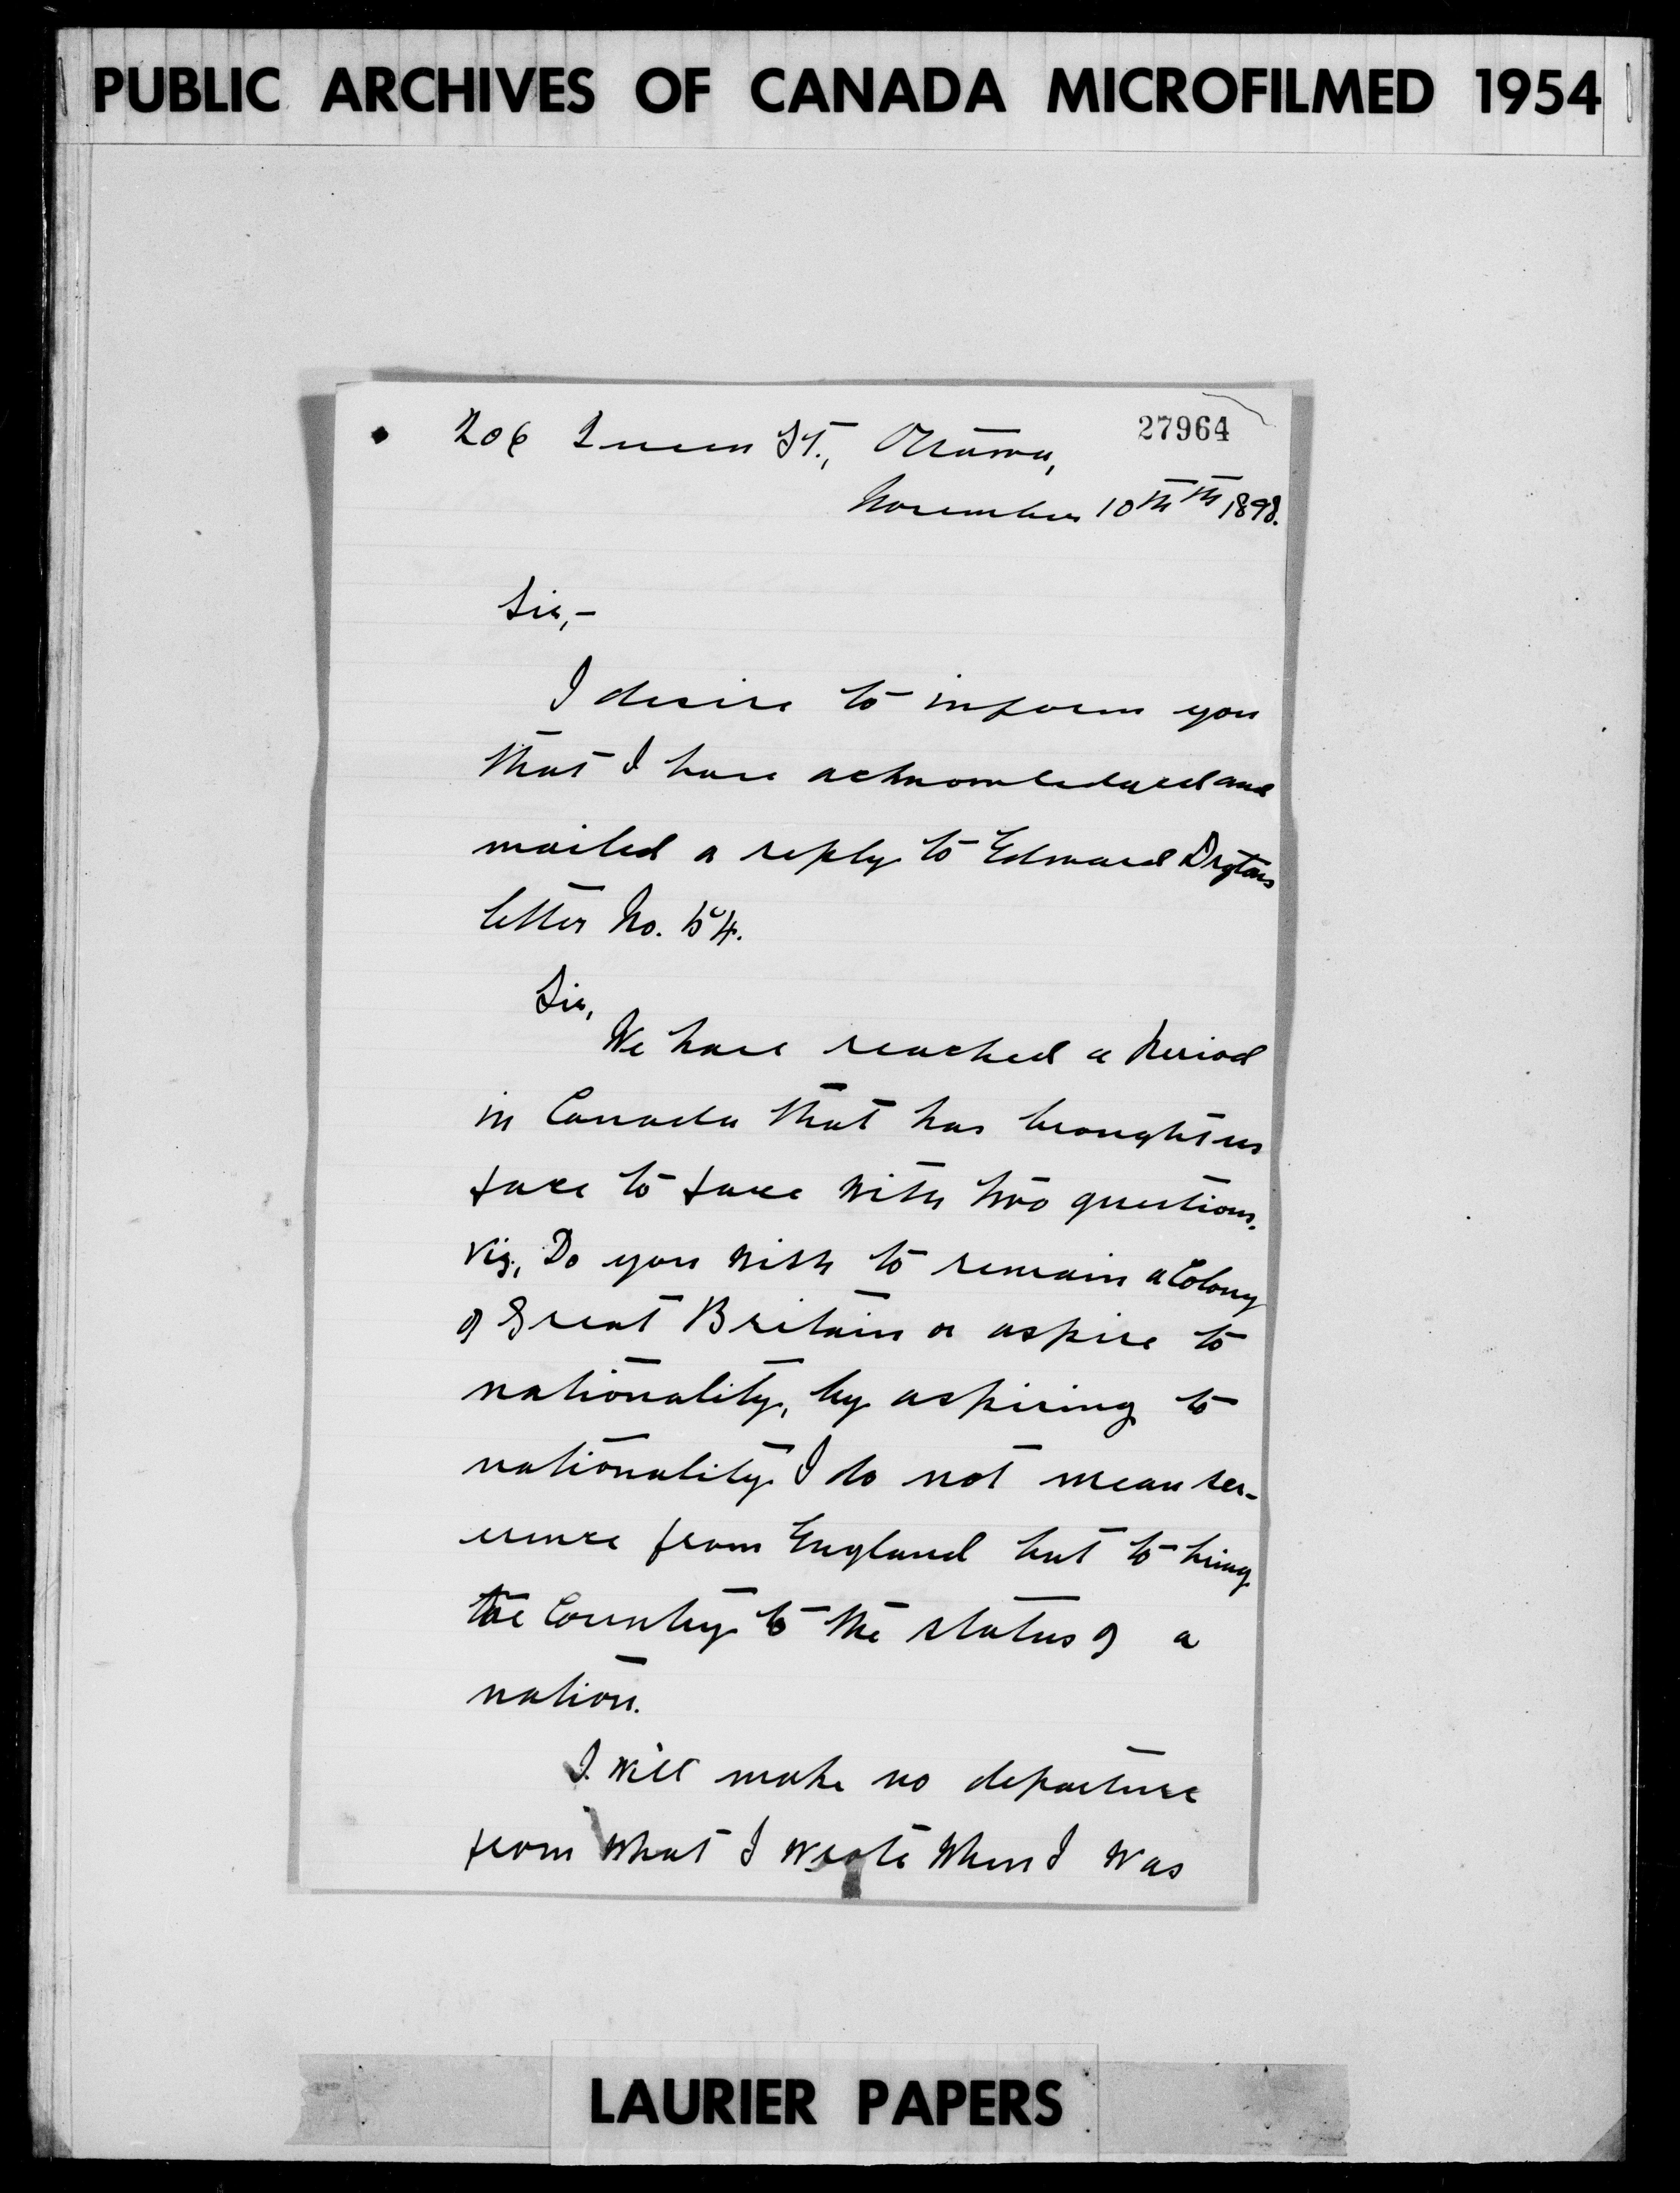 PUBLIC ARCHIVES OF CANADA MICROFILMED 1954
27964
206 Queen St., Ottawa,
November 10th th 1898.
Sir,-
I desire to inform you
that I have acknowledged and
mailed a reply to Edward
letter No. 54.
Sir,
We have reached a period
in Canada that has brought us
face to face with two questions.
Viz., Do you wish to remain a Colony
of Great Britain or aspire to
nationality, by aspiring to
nationality I do not mean sev-
erence from England but to bring
the Country to the status of a
nation.
I will make no departure
from what I wrote when I was
LAURIER PAPERS